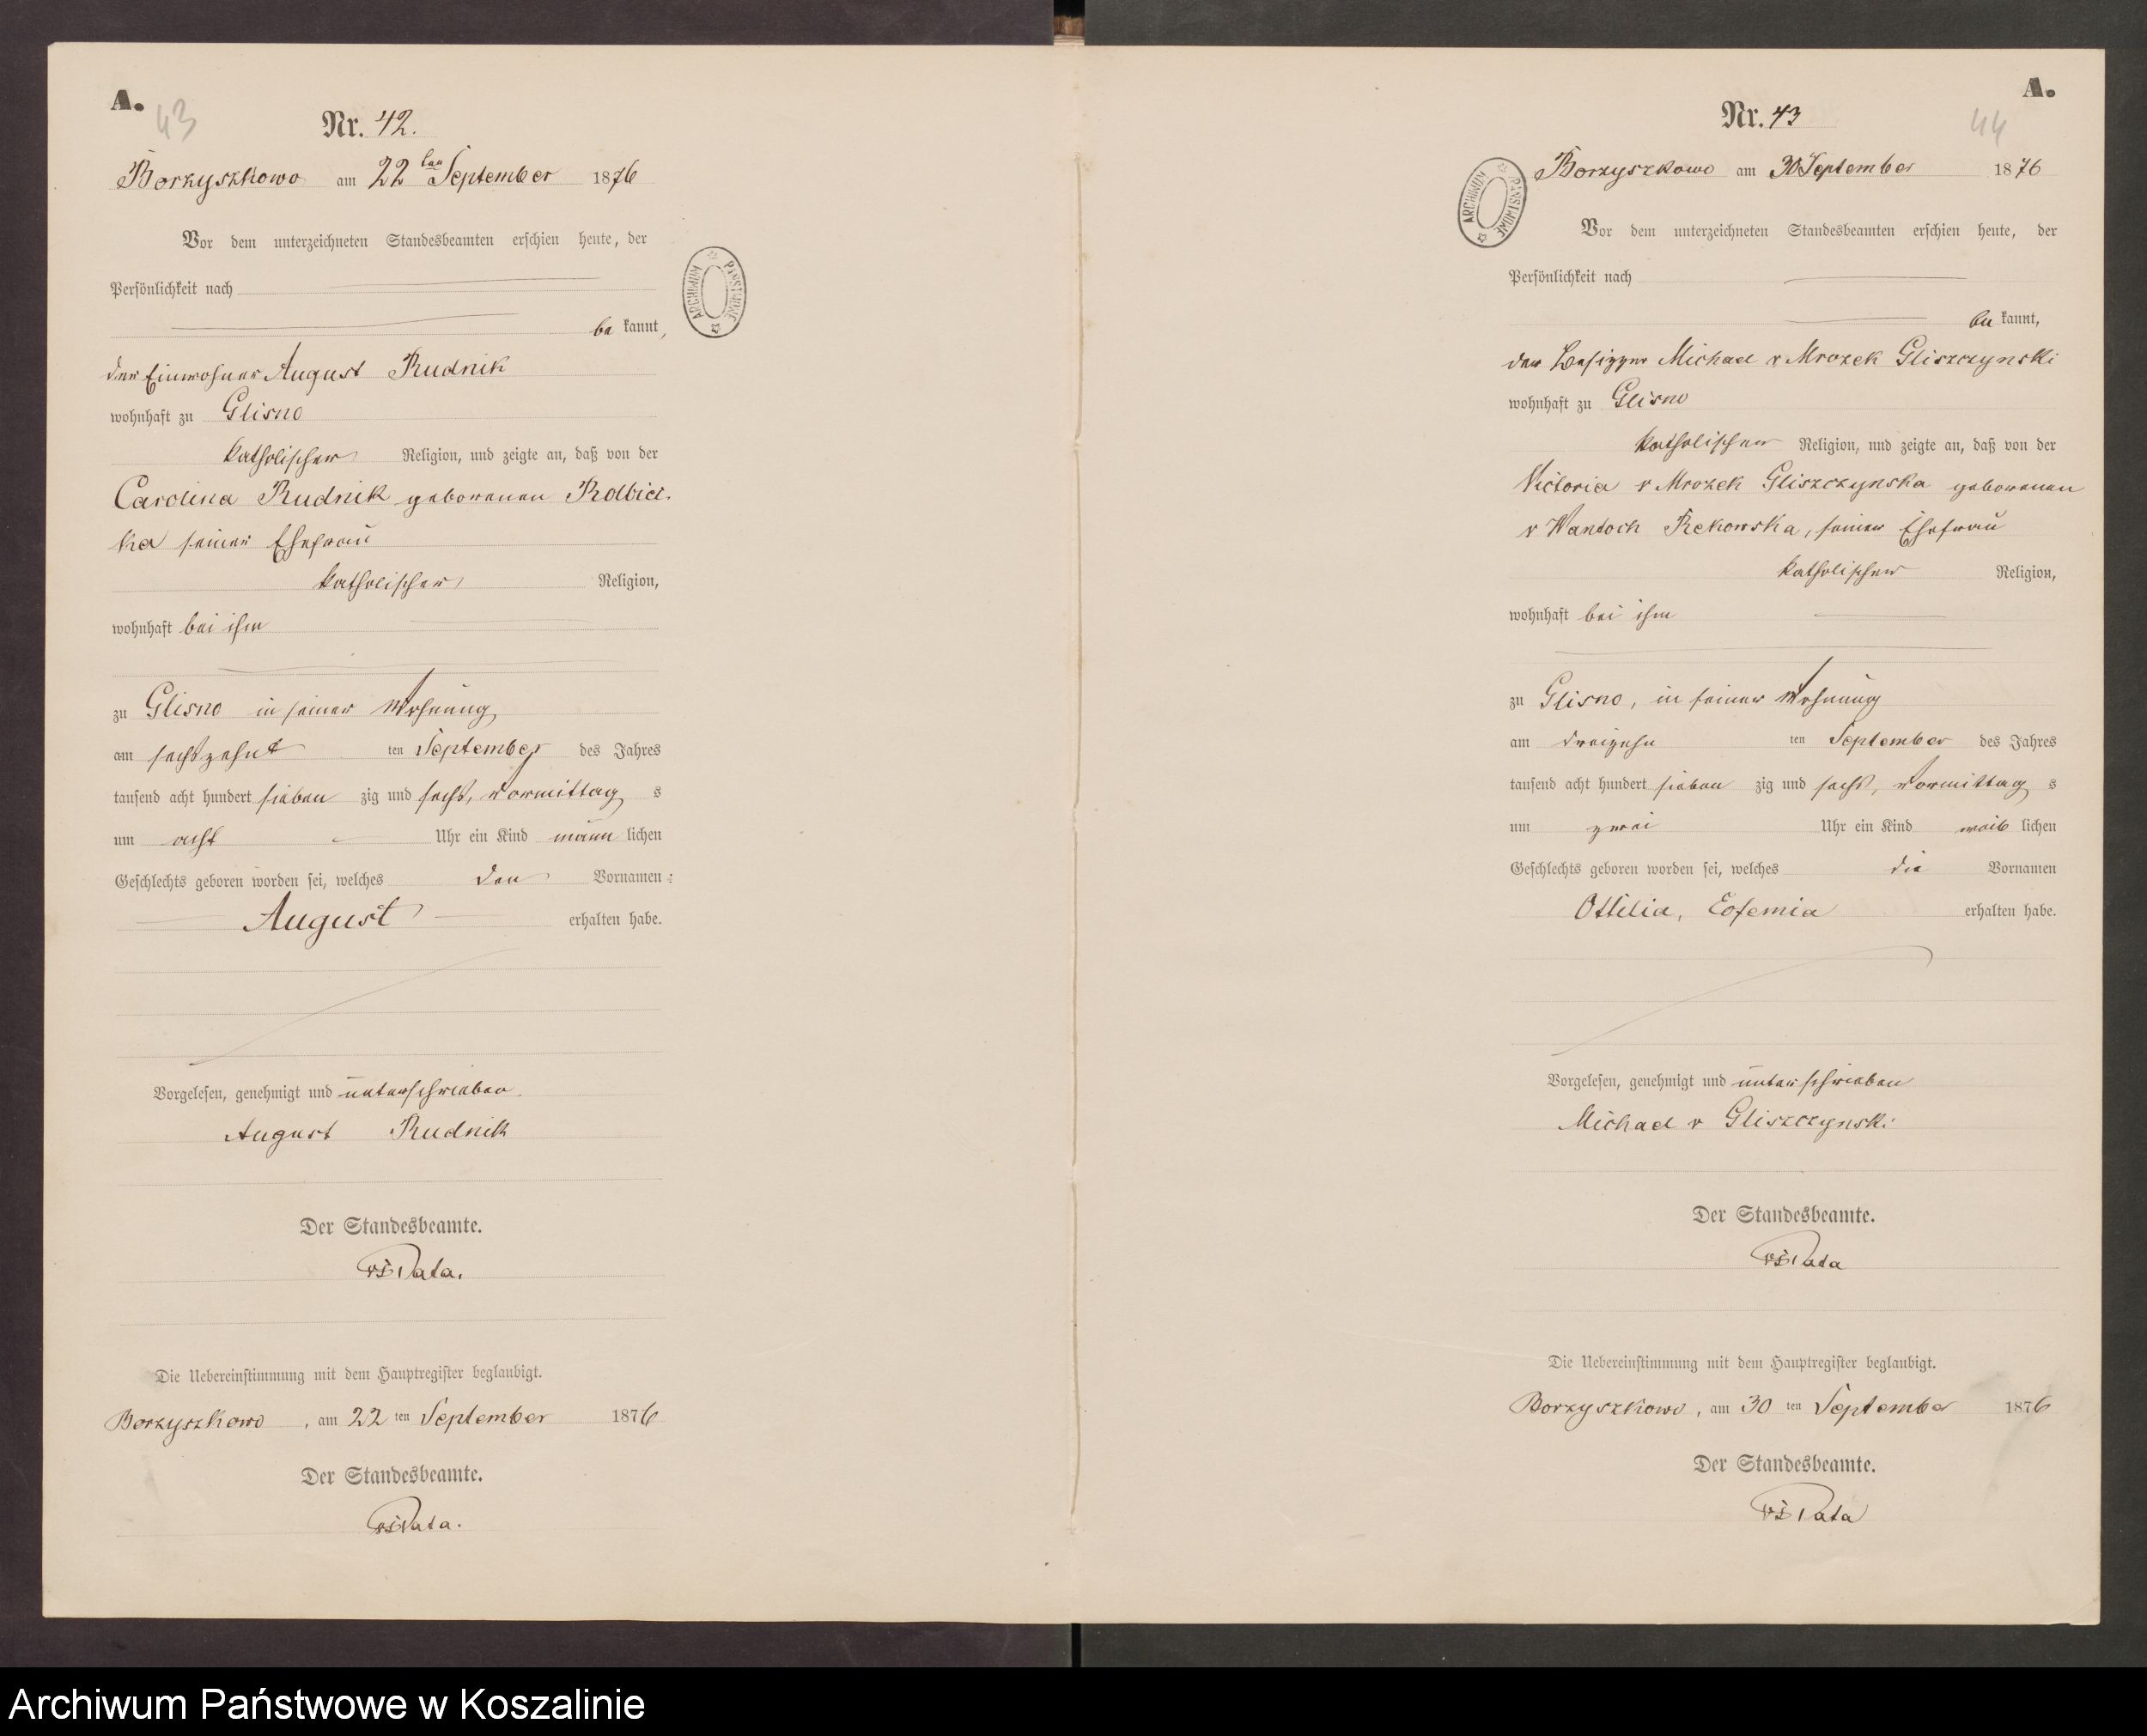 A.
43
Nr. 42.
Borzyszkowo am 22 ten September 1876
Vor dem unterzeichneten Standesbeamten erschien heute, der
Persönlichkeit nach
be kannt,
der Einwohner August Rudnik
wohnhaft zu Glisno
katholischer Religion, und zeigte an, daß von der
Carolina Rudnik geborenen
ka seiner Ehefrau
katholischer Religion,
wohnhaft bei ihm
zu Glisno in seiner Wohnung
am sechszehnt ten September des Jahres
tausend acht hundert sieben zig und sechs, Vormittag s
um acht Uhr ein Kind männ lichen
Geschlechts geboren worden sei, welches den Vornamen
August erhalten habe.
Vorgelesen, genehmigt und unterschrieben.
August Rudnik
Der Standesbeamte.
Die Uebereinstimmung mit dem Hauptregister beglaubigt.
Borzyszkowo, am 22 ten September 1876
Der Standesbeamte.
ARCHIWUM PAŃSTWOWE
A.
44
Nr. 43
Borzyszkowo am 30 September 1876
Vor dem unterzeichneten Standesbeamten erschien heute, der
Persönlichkeit nach
be kannt,
der Besitzer Michael v Mrozek Gliszczynski
wohnhaft zu Glisno
katholischer Religion, und zeigte an, daß von der
Victoria v Mrozek Gliszczynska geborenen
v Wantoch Rekowska, seiner Ehefrau
katholischer Religion,
wohnhaft bei ihm
zu Glisno, in seiner Wohnung
am dreizehn ten September des Jahres
tausend acht hundert sieben zig und sechs, Vormittag s
um zwei Uhr ein Kind weib lichen
Geschlechts geboren worden sei, welches die Vornamen
Ottilia, Eofemia erhalten habe.
Vorgelesen, genehmigt und unterschrieben
Michael v Gliszczynski
Der Standesbeamte.
Die Uebereinstimmung mit dem Hauptregister beglaubigt.
Borzyszkowo, am 30 ten September 1876
Der Standesbeamte.
ARCHIWUM PAŃSTWOWE
Archiwum Państwowe w Koszalinie